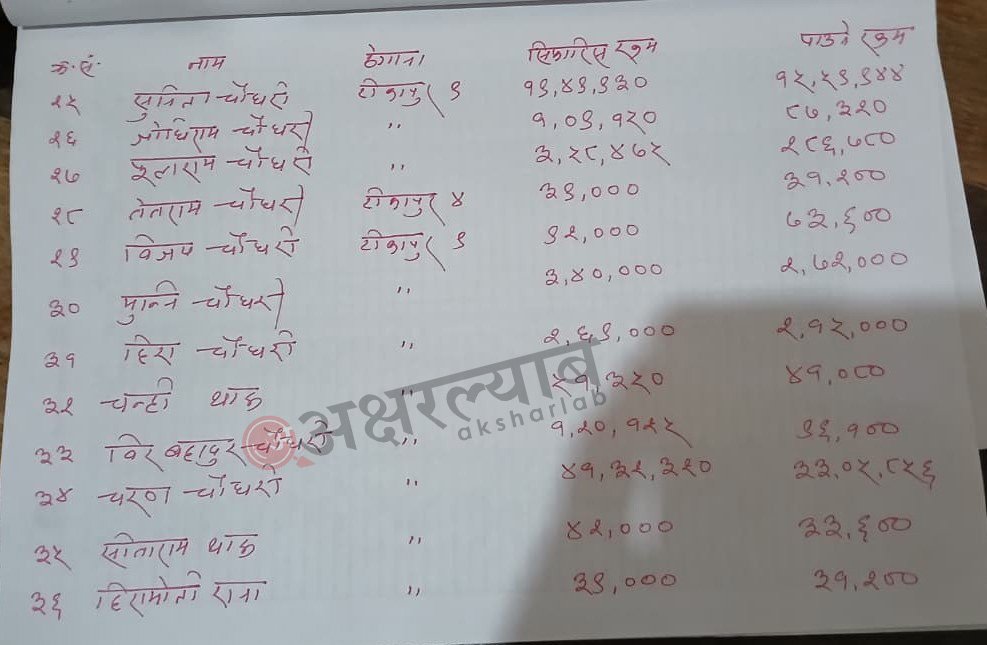 क्र.सं. नाम ठेगाना सिफारिस रकम पाउने रकम
२५ सुनिता चौधरी टीकापुर ९ १९,४९,९३० १५,५९,९४४
२६ जोधिराम चौधरी " १,०९,१५० ८७,३२०
२७ फूलाराम चौधरी " ३,५८,४७५ २८६,७८०
२८ तेतराम चौधरी टीकापुर ४ ३९,००० ३१,२००
२९ विजय चौधरी टीकापुर ९ ९२,००० ७३,६००
३० मुन्नि चौधरी " ३,४०,००० २,७२,०००
३१ हिरा चौधरी " २,६९,००० २,१५,०००
३२ चन्ही थारु " ५१,३५० ४१,०८०
३३ विर बहादुर चौधरी " १,२०,१२५ ९६,१००
३४ चरण चौधरी " ४१,३२,३२० ३३,०५,८५६
३५ सीताराम थारु " ४२,००० ३३,६००
३६ हिरामोती राना " ३९,००० ३१,२००
अक्षरल्याब
aksharlab